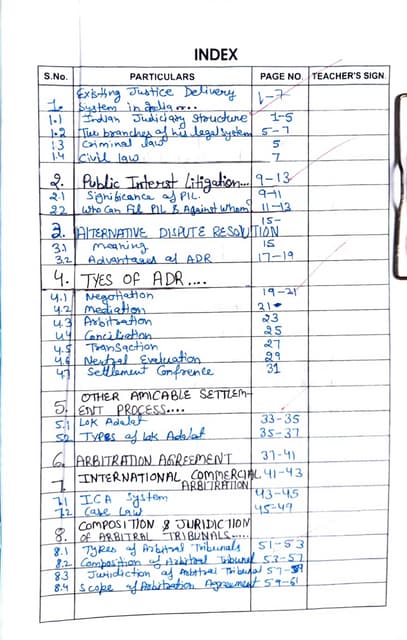 INDEX
S.No. PARTICULARS PAGE NO. TEACHER'S SIGN.
Existing Justice Delivery
1. System in India.... 1-7
1.1 Indian Judiciary Structure 1-5
1.2 Two branches of his legal system 5-7
1.3 Criminal law 5
1.4 Civil law 7
2. Public Interst Litigation... 9-13
2.1 Significance of PIL. 9-11
2.2 Who Can Fil PIL & Against Whom 11-13
15-
3. ALTERNATIVE DISPUTE RESOLUTION
3.1 Meaning 15
3.2 Advantages of ADR 17-19
4. TYES OF ADR....
4.1 Negotiation 19-21
4.2 Mediation 21
4.3 Arbitration 23
4.4 Conciliation 25
4.5 Transaction 27
4.6 Neutral Evaluation 29
4.7 Settlement Confrence 31
OTHER AMICABLE SETTLEM-
5. ENT PROCESS....
5.1 Lok Adalat 33-35
5.2 Types of Lok Adalat 35-37
6. ARBITRATION AGREEMENT 37-41
7. INTERNATIONAL COMMERCIAL 41-43
ARBITRATION
7.1 ICA System 43-45
7.2 Case Law 45-49
COMPOSITION & JURIDICTION
8. OF ARBITRAL TRIBUNALS.....
8.1 Types of Arbitral Tribunals 51-53
8.2 Composition of Arbitral Tribunal 53-57
8.3 Juridiction of Arbitral Tribunal 57-59
8.4 Scope of Arbitration Agreement 59-61